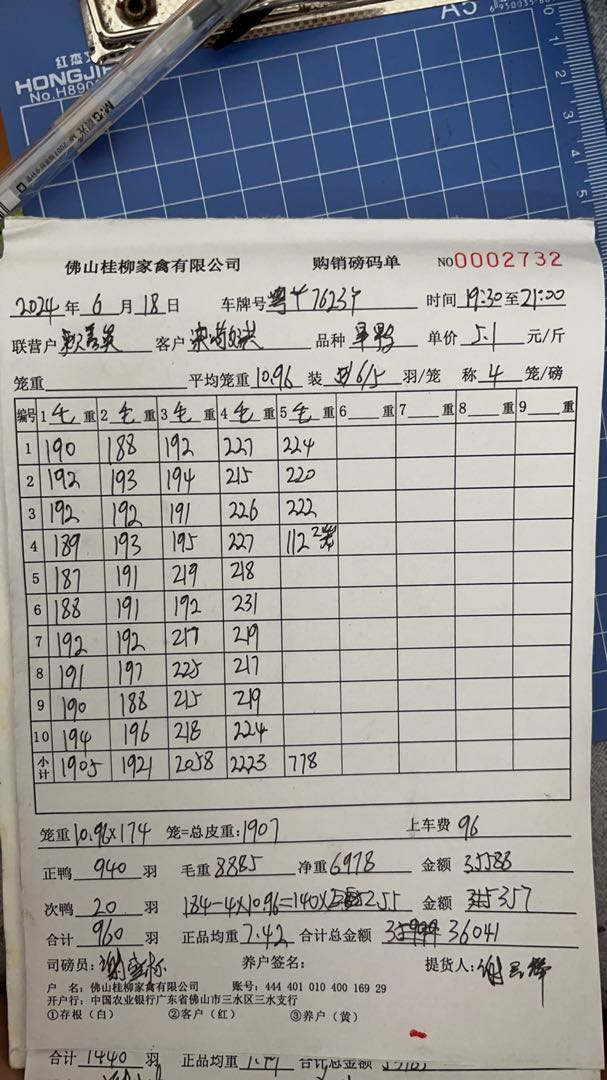 A5
6950035
红杰
HONGJI
No.H890
M&G 晨光
佛山桂柳家禽有限公司 购销磅码单 NO0002732
2024 年 6 月 18 日 车牌号 7623 时间 19:30 至 21:00
联营户 客户 品种 单价 5.1 元/斤
笼重 平均笼重 10.96 装 6/5 羽/笼 称 4 笼/磅
编号 1 毛 重 2 毛 重 3 毛 重 4 毛 重 5 毛 重 6 重 7 重 8 重 9 重
1 190 188 192 227 224
2 192 193 194 215 220
3 192 192 191 226 222
4 189 193 195 227 112 2笼
5 187 191 219 218
6 188 191 192 231
7 192 192 217 219
8 191 197 225 217
9 190 188 215 219
10 194 196 218 224
小计 1905 1921 2058 2223 778
笼重 10.96×174 笼=总皮重:1907 上车费 96
正鸭 940 羽 毛重 8885 净重 6978 金额 35588
次鸭 20 羽 184-4×10.96=140× 255 金额 357
合计 960 羽 正品均重 7.42 合计总金额 36041
司磅员: 养户签名: 提货人:
户 名: 佛山桂柳家禽有限公司 账号: 444 401 010 400 169 29
开户行: 中国农业银行广东省佛山市三水区三水支行
①存根（白） ②客户（红） ③养户（黄）
合计 1440 羽 正品均重 合计总金额